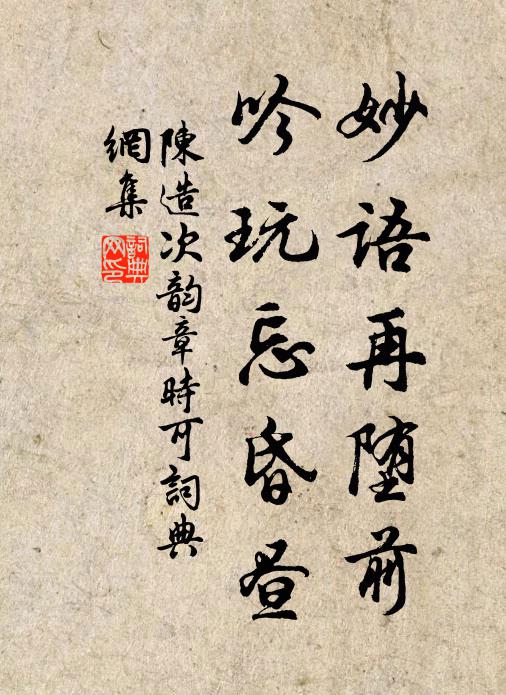 妙语再堕前
吟玩忘昏昼
陳造次韵章時可詞典
網集
詞典
网印